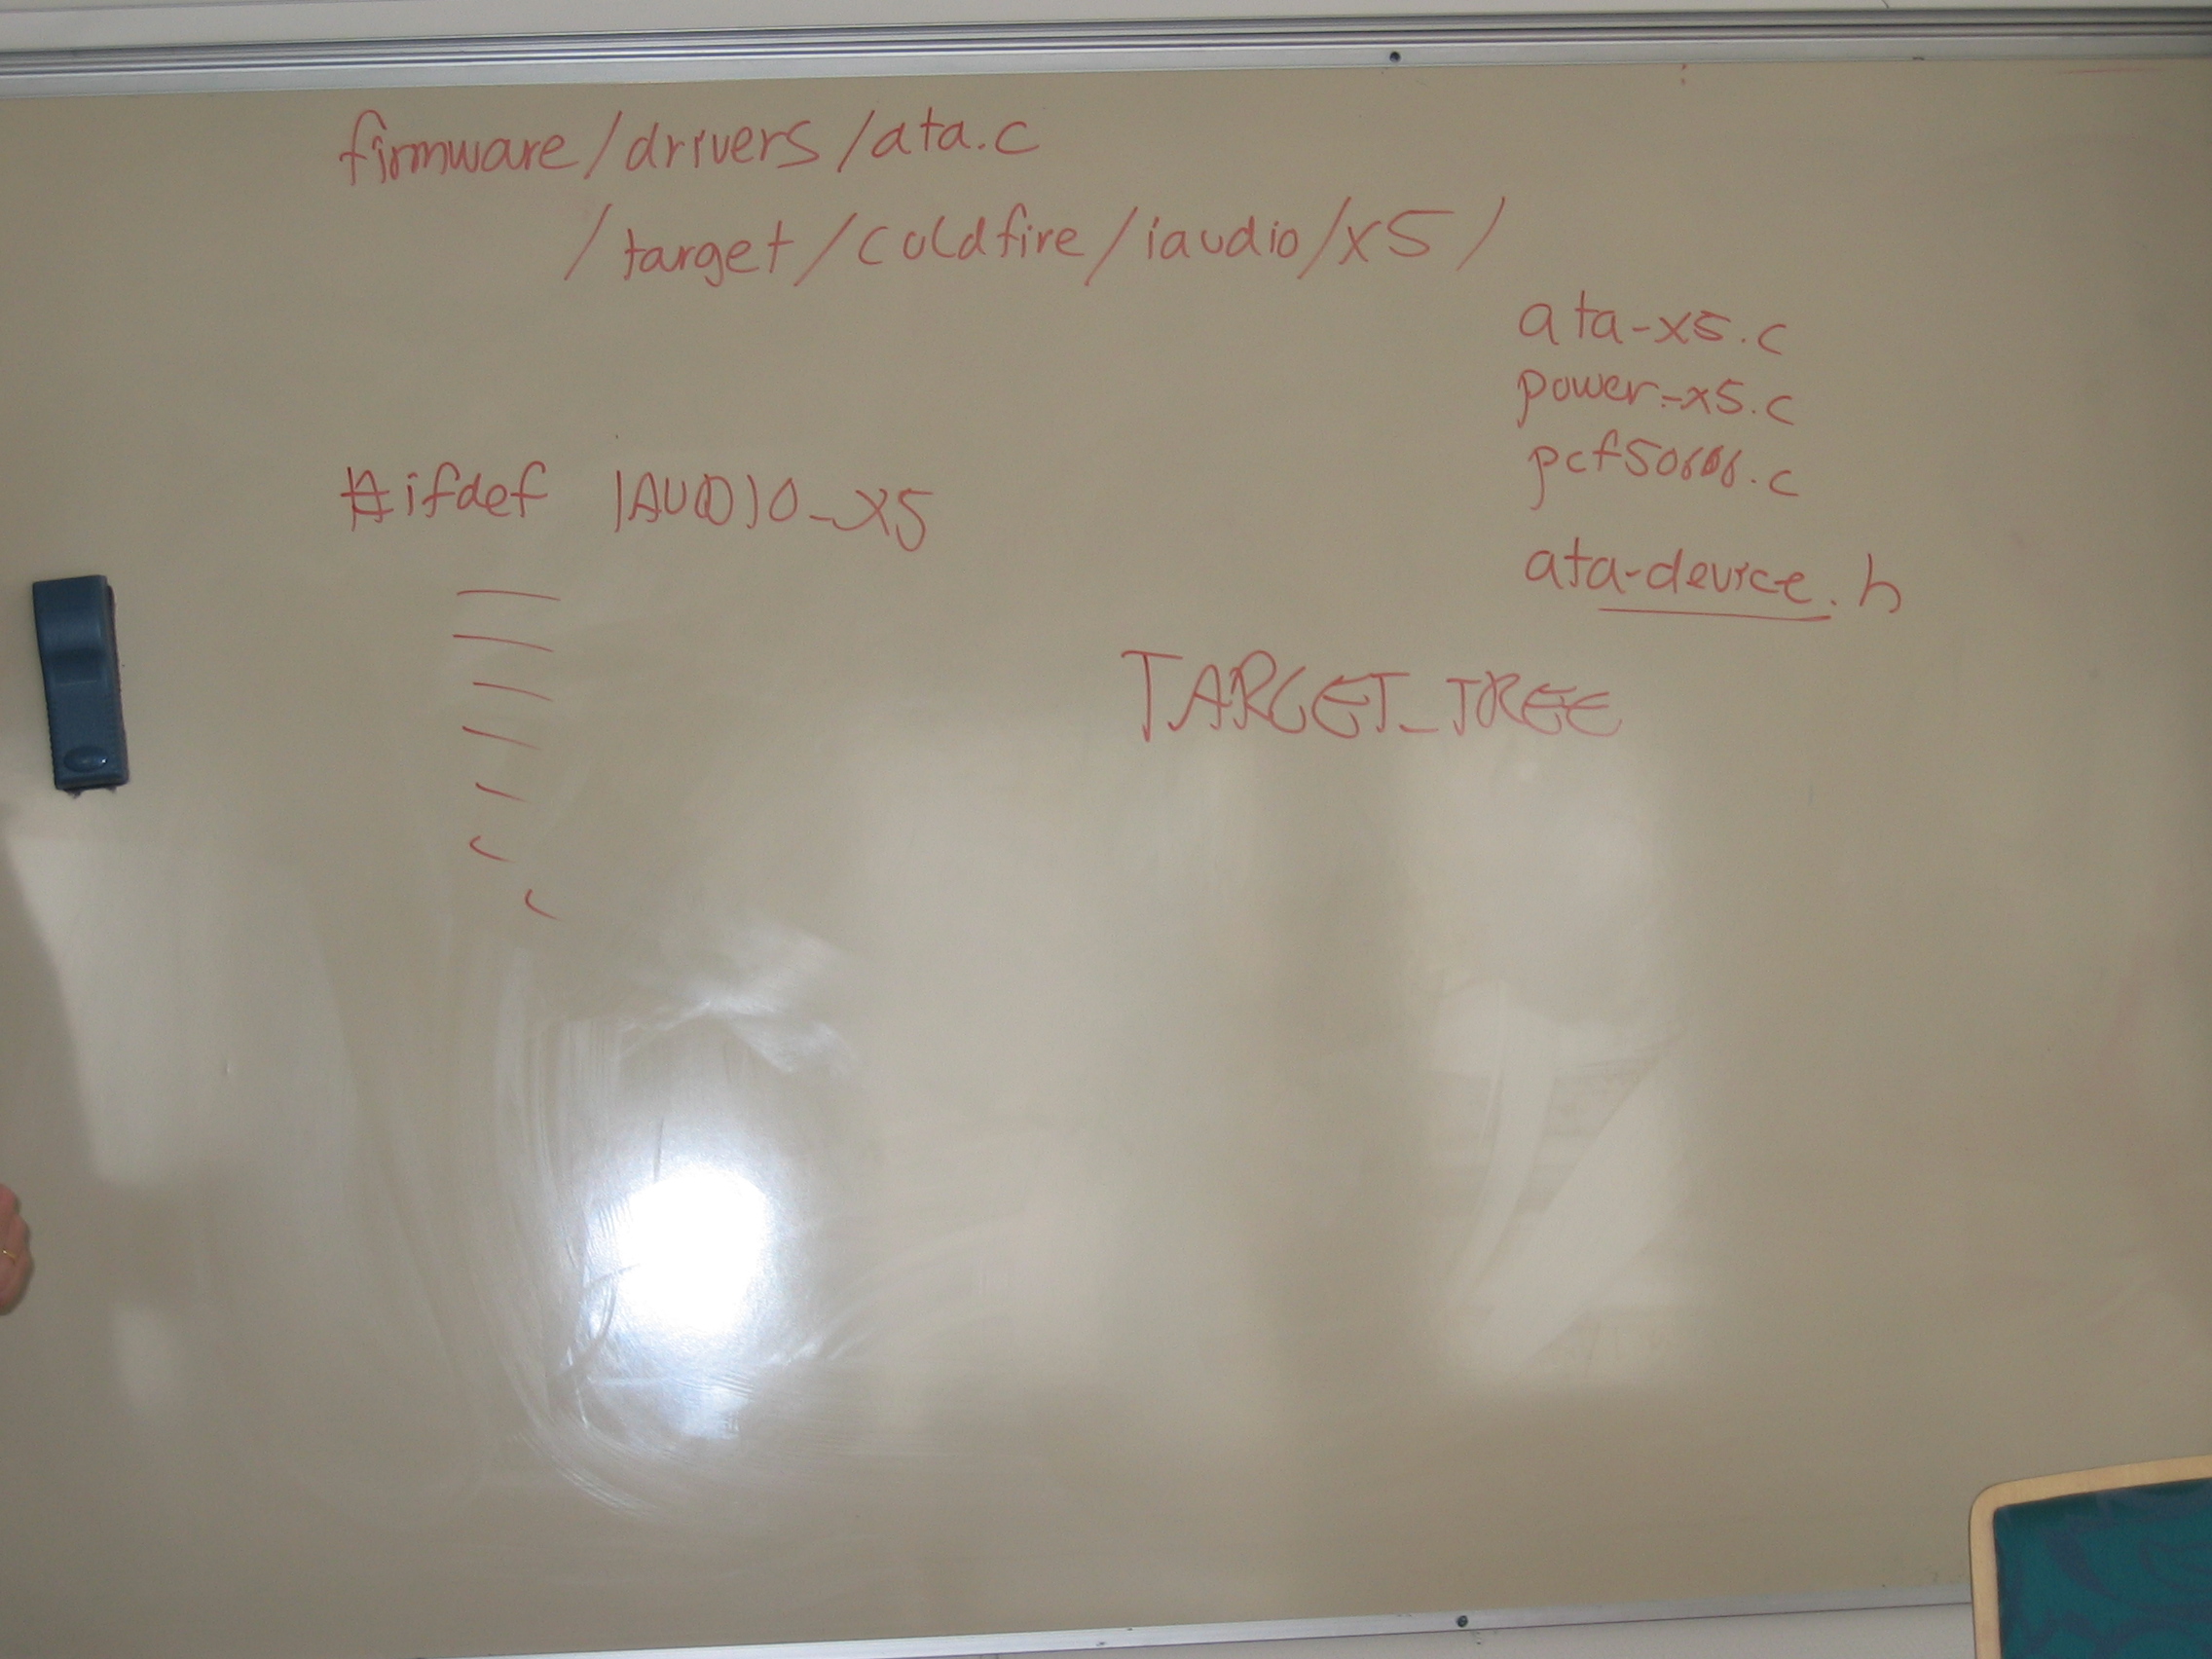 firmware/drivers/ata.c
/target/coldfire/iaudio/x5/
ata-x5.c
power-x5.c
pcf50606.c
#ifdef IAUDIO_X5
ata-device.h
TARGET_TREE